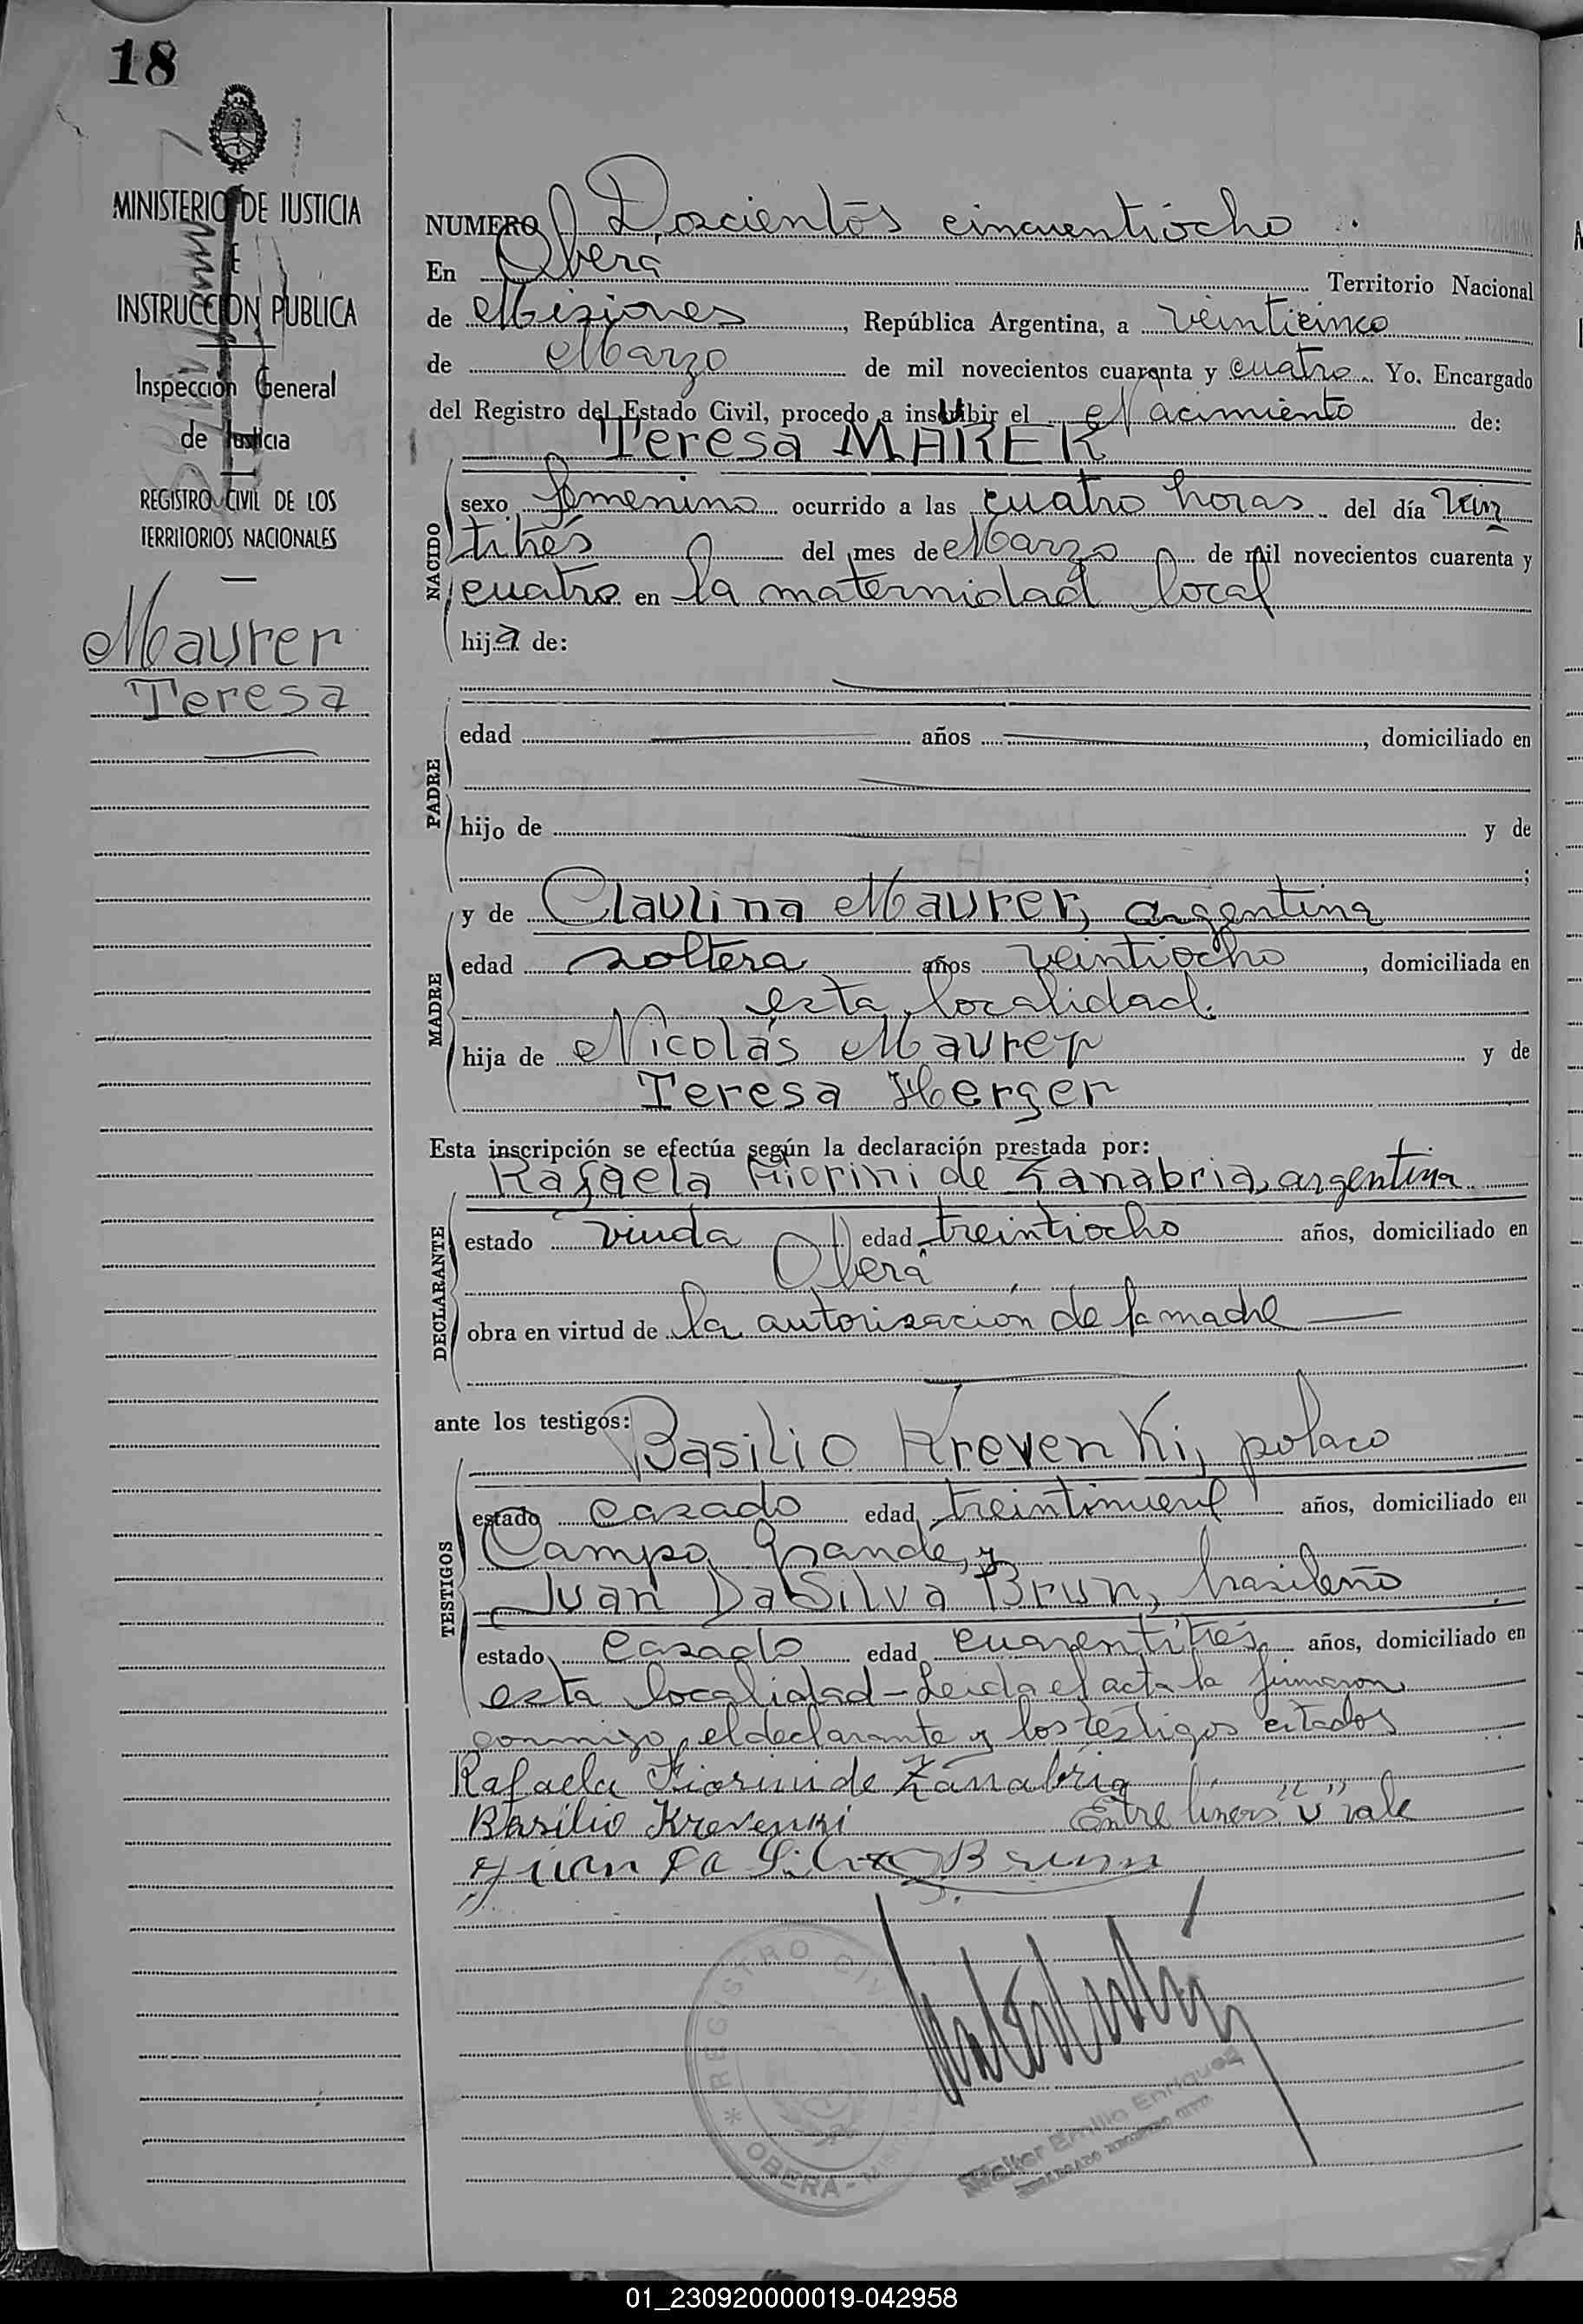 18
MINISTERIO DE JUSTICIA
E
INSTRUCCION PUBLICA
Inspección General
de Justicia
REGISTRO CIVIL DE LOS
TERRITORIOS NACIONALES
Maurer
Teresa
NUMERO Doscientos cincuentiocho
En Oberá Territorio Nacional
de Misiones, República Argentina, a veinticinco
de Marzo de mil novecientos cuarenta y cuatro Yo. Encargado
del Registro del Estado Civil, procedo a inscribir el Nacimiento de:
U
Teresa MARER
NACIDO
sexo femenino ocurrido a las cuatro horas del día vein
titrés del mes de Marzo de mil novecientos cuarenta y
cuatro en la maternidad local
hija de:
PADRE
edad años, domiciliado en
hijo de y de
;
MADRE
y de Claulina Maurer, argentina
edad soltera años veintiocho, domiciliada en
esta localidad.
hija de Nicolás Maurer y de
Teresa Herger
Esta inscripción se efectúa según la declaración prestada por:
DECLARANTE
Rafaela Fiorini de Zanabria, argentina
estado viuda edad treintiocho años, domiciliado en
Oberá
obra en virtud de la autorisación de la madre
ante los testigos:
TESTIGOS
Basilio Krevenki, polaco
estado casado edad treintinueve años, domiciliado en
Campo Grande, y
Juan DaSilva Brun, brasileño
estado casado edad cuarentitrés años, domiciliado en
esta localidad - Leida el acta la firmaron
conmigo, el declarante y los testigos citados
Rafaela Fiorini de Zanabria
Basilio Krevenki Entre lineas "U" vale
Juan Da Silva Brunn
REGISTRO CIVIL
* OBERA - MIS
Walter Emilio Enriquez
ENCARGADO REGISTRO CIVIL
01_230920000019-042958